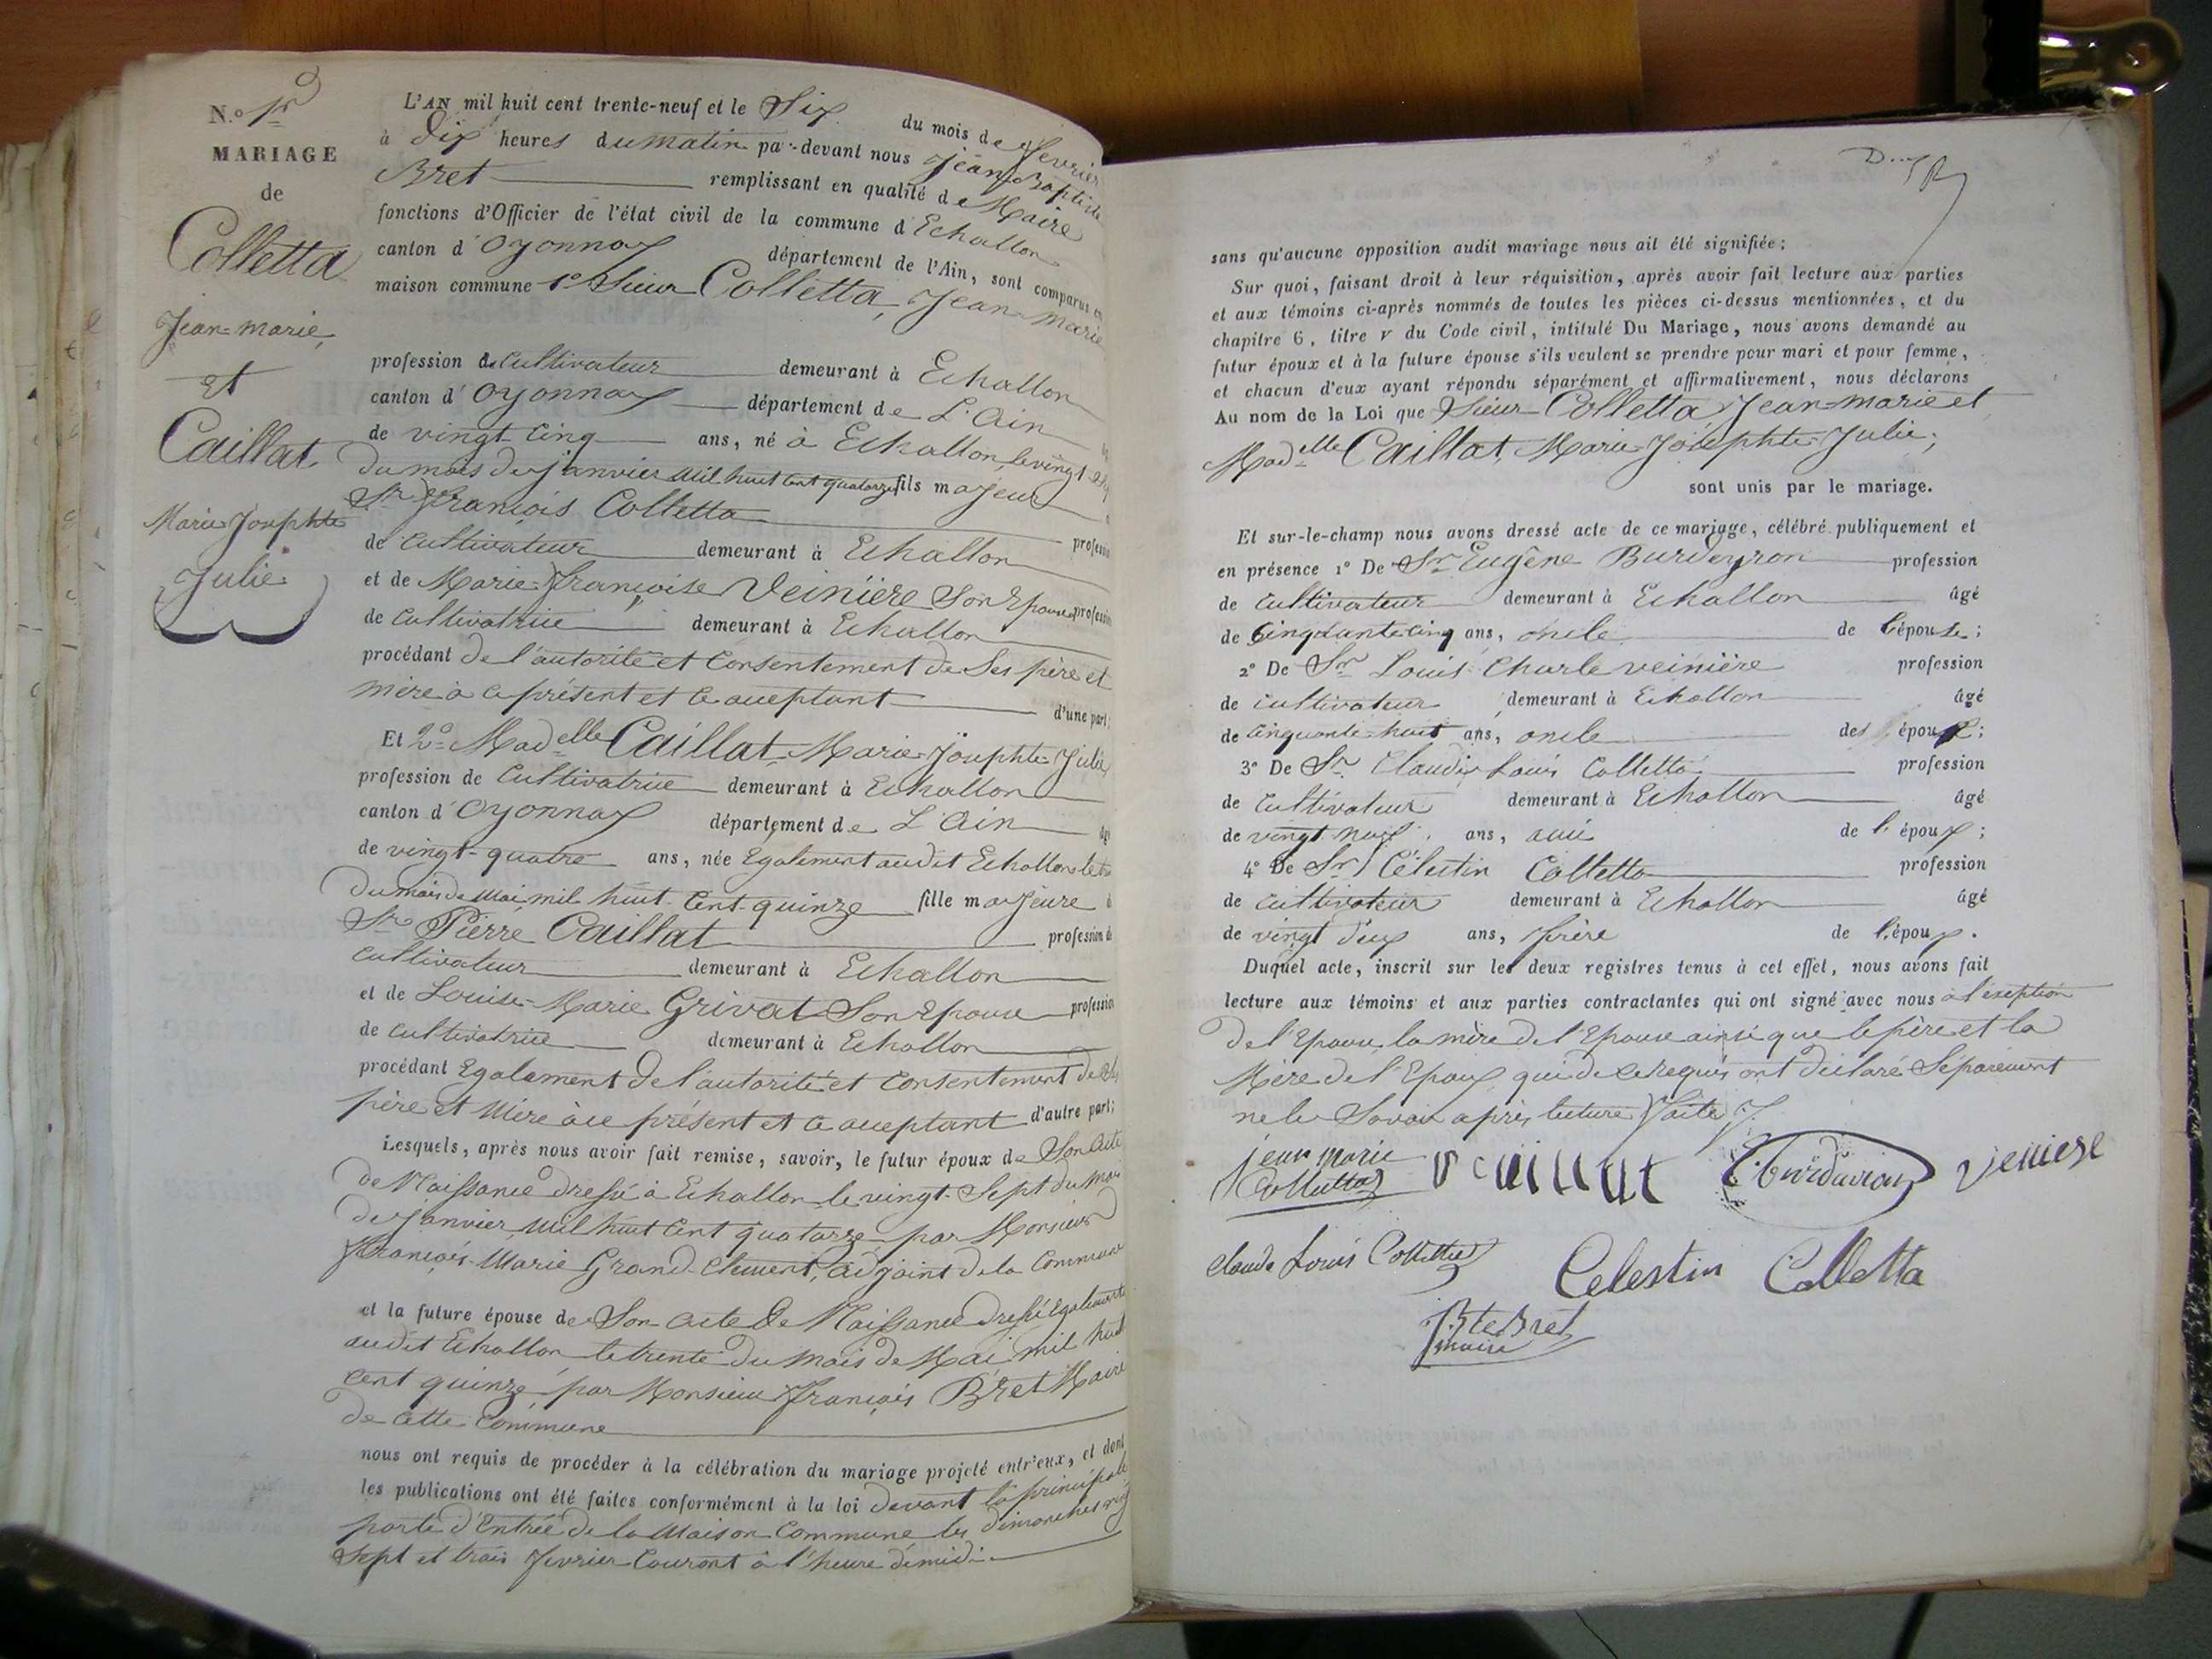 N.o 1er
MARIAGE
de
Colletta
Jean-marie,
et
Caillat,
Marie Josephte
Julie
L'AN mil huit cent trente-neuf et le Six du mois de fevrier
à Dix heures du matin par-devant nous jean Baptiste
Bret remplissant en qualité de Maire
fonctions d'Officier de l'état civil de la commune d'Echallon
canton d'Oyonnax département de l'Ain, sont comparus en
maison commune 1° Sieur Colletta, Jean-marie
profession de Cultivateur demeurant à Echallon
canton d'Oyonnax département de L'Ain
de vingt-cinq ans, né à Echallon, le vingt
du mois de janvier mil huit cent quatorze fils majeur
Sr françois Colletta
de cultivateur demeurant à Echallon
et de Marie-françoise Veinière Son Epouse profession
de cultivatrice demeurant à Echallon
procédant de l'autorité et Consentement de Ses père et
mère à ce présent et ce acceptant d'une part;
Et 2° Madelle Caillat, Marie-Josephte-Julie
profession de Cultivatrice demeurant à Echallon
canton d'Oyonnax département de L'Ain
de vingt-quatre ans, née Egalement audit Echallon le
du mois de Mai mil huit-Cent-quinze fille majeure
Sr Pierre Caillat profession de
cultivateur demeurant à Echallon
et de Louise-Marie Grivat Son Epouse profession
de cultivatrice demeurant à Echallon
procédant Egalement de l'autorité et consentement de Ses
père et Mère à ce présent et ce acceptant d'autre part;
Lesquels, après nous avoir fait remise, savoir, le futur époux de Son Acte
de Naissance dressé à Echallon le vingt-Sept du mois
de janvier mil huit Cent quatorze par Monsieur
françois-Marie Grand-Clement, adjoint de la Commune
et la future épouse de Son acte de Naissance dressé Egalement
audit Echallon le trente du mois de Mai mil huit
cent quinze par Monsieur françois Bret Maire
de cette Commune
nous ont requis de procéder à la célébration du mariage projeté entr'eux, et dont
les publications ont été faites conformément à la loi devant la principale
porte d'Entrée de la Maison Commune les dimanches vingt
Sept et trois fevrier Courant à l'heure de midi
sans qu'aucune opposition audit mariage nous ait été signifiée;
Sur quoi, faisant droit à leur réquisition, après avoir fait lecture aux parties
et aux témoins ci-après nommés de toutes les pièces ci-dessus mentionnées, et du
chapitre 6, titre V du Code civil, intitulé Du Mariage, nous avons demandé au
futur époux et à la future épouse s'ils veulent se prendre pour mari et pour femme,
et chacun d'eux ayant répondu séparément et affirmativement, nous déclarons
Au nom de la Loi que Sieur Colletta Jean-marie et
Madelle Caillat, Marie-Josephte-Julie;
sont unis par le mariage.
Et sur-le-champ nous avons dressé acte de ce mariage, célébré publiquement et
en présence 1° De Sr Eugêne Burdeyron profession
de cultivateur demeurant à Echallon âgé
de Cinquante cinq ans, oncle de l'épouse;
2° De Sr Louis Charle veinière profession
de cultivateur demeurant à Echallon âgé
de cinquante-huit ans, oncle des époux;
3° De Sr Claude Louis Colletta profession
de Cultivateur demeurant à Echallon âgé
de vingt-neuf ans, ami de l'époux;
4° De Sr Célestin Colletta profession
de cultivateur demeurant à Echallon âgé
de vingt deux ans, frère de l'époux.
Duquel acte, inscrit sur les deux registres tenus à cet effet, nous avons fait
lecture aux témoins et aux parties contractantes qui ont signé avec nous à l'exeption
de l'Epouse, la mère de l'Epouse ainsi que le père et la
Mère de l'Epoux qui de ce requis ont déclaré Séparément
ne le Savoir après lecture faite
jean marie
Colletta caillat Burdeiron veniere
claude Louis Colletta Celestin Colletta
J. Bte Bret
maire